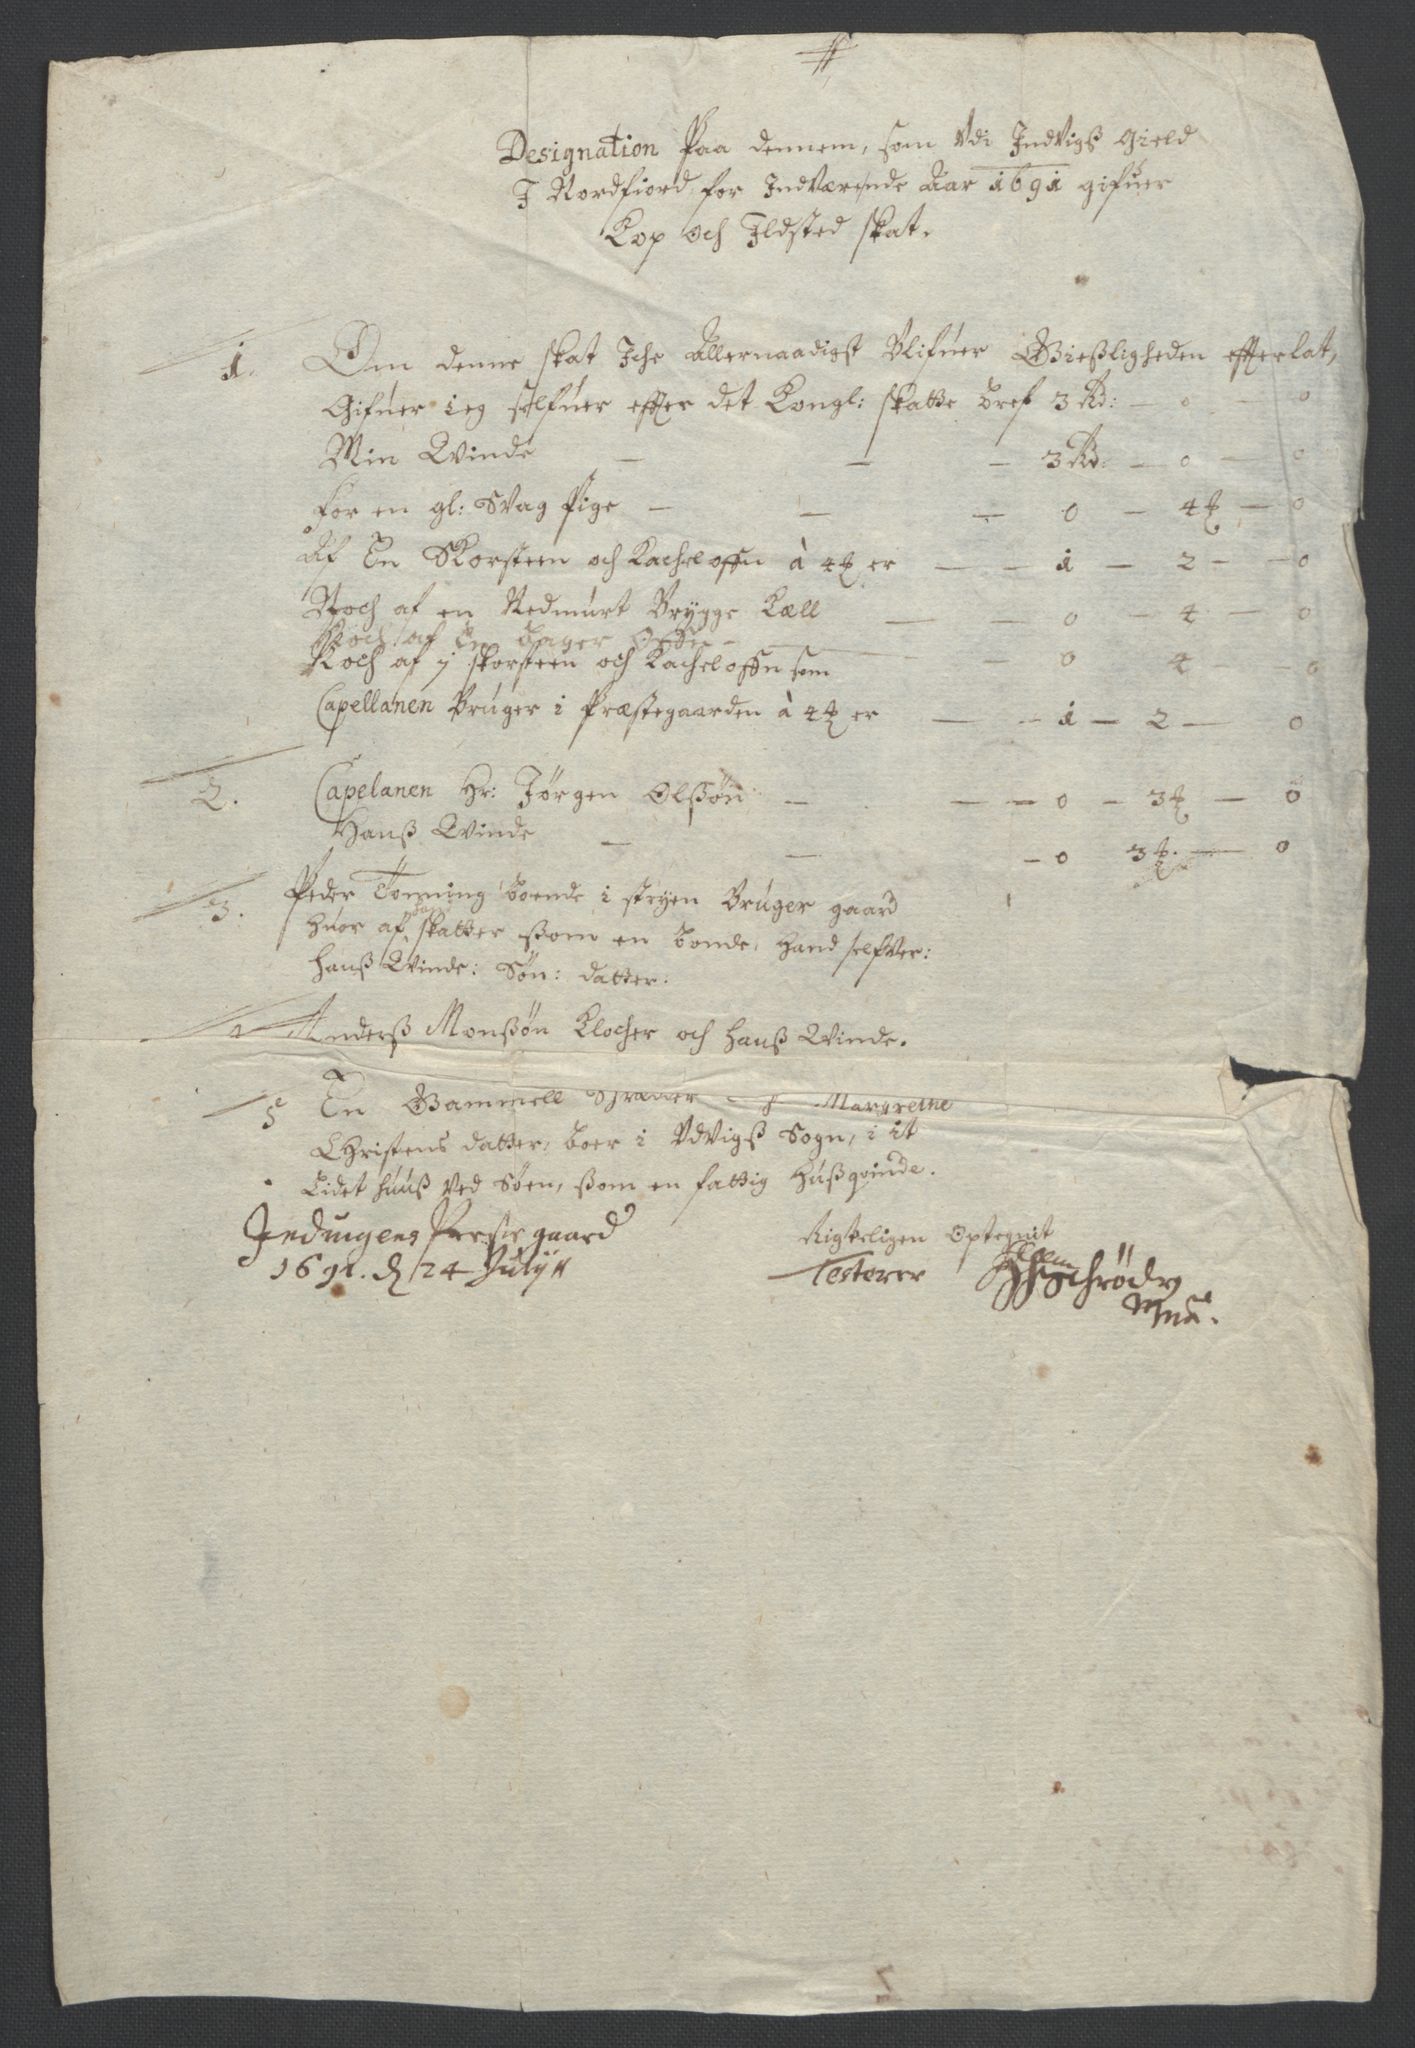 Designation Paa dennem, som Udi Indvigß Gield
I Nordfiord for Indværende Aar 1691 gifuer
Kop och Ildsted skat.
1. Om denne skat Iche Allernaadigst Blifuer Gießligheden efterlat,
Gifuer ieg selfuer efter det Kongl: skatte bref 3 Rd: — 0 — 0
Min Qvinde — — — 3 Rd: — 0 — 0
for en gl: Svag Pige — — — 0 — 4 ꝥ — 0
Af En Skorsteen och Kachelofn à 4 ꝥ er — — 1 — 2 — 0
Noch af en Nedmurt Brygge Kæll — — 0 — 4 — 0
Noch af En bager Ofn —
Noch af j skorsteen och Kachelofn som — 0 4 — 0
Capellanen Bruger i Præstegaarden à 4 ꝥ er — — 1 — 2 — 0
2. Capelanen Hr: Jørgen Olßøn — — — 0 — 3 ꝥ — 0
Hanß Qvinde — — — 0 3 ꝥ — 0
3. Peder Tonning boende i stryen Bruger gaard
huor af skatter ßom en bonde, hand selfver:
hanß Qvinde: Søn: datter.
Anderß Monßøn Klocher och hanß Qvinde.
5 En Gammell Margrethe
Christens datter, boer i Udvigß Sogn, i it
Lidet huuß ved Søen, ßom en fattig Hußqvinde.
Indvigens Præste gaard Rigteligen Optegnit
1691. d 24 Julij Testerer Schrøder
Mma.